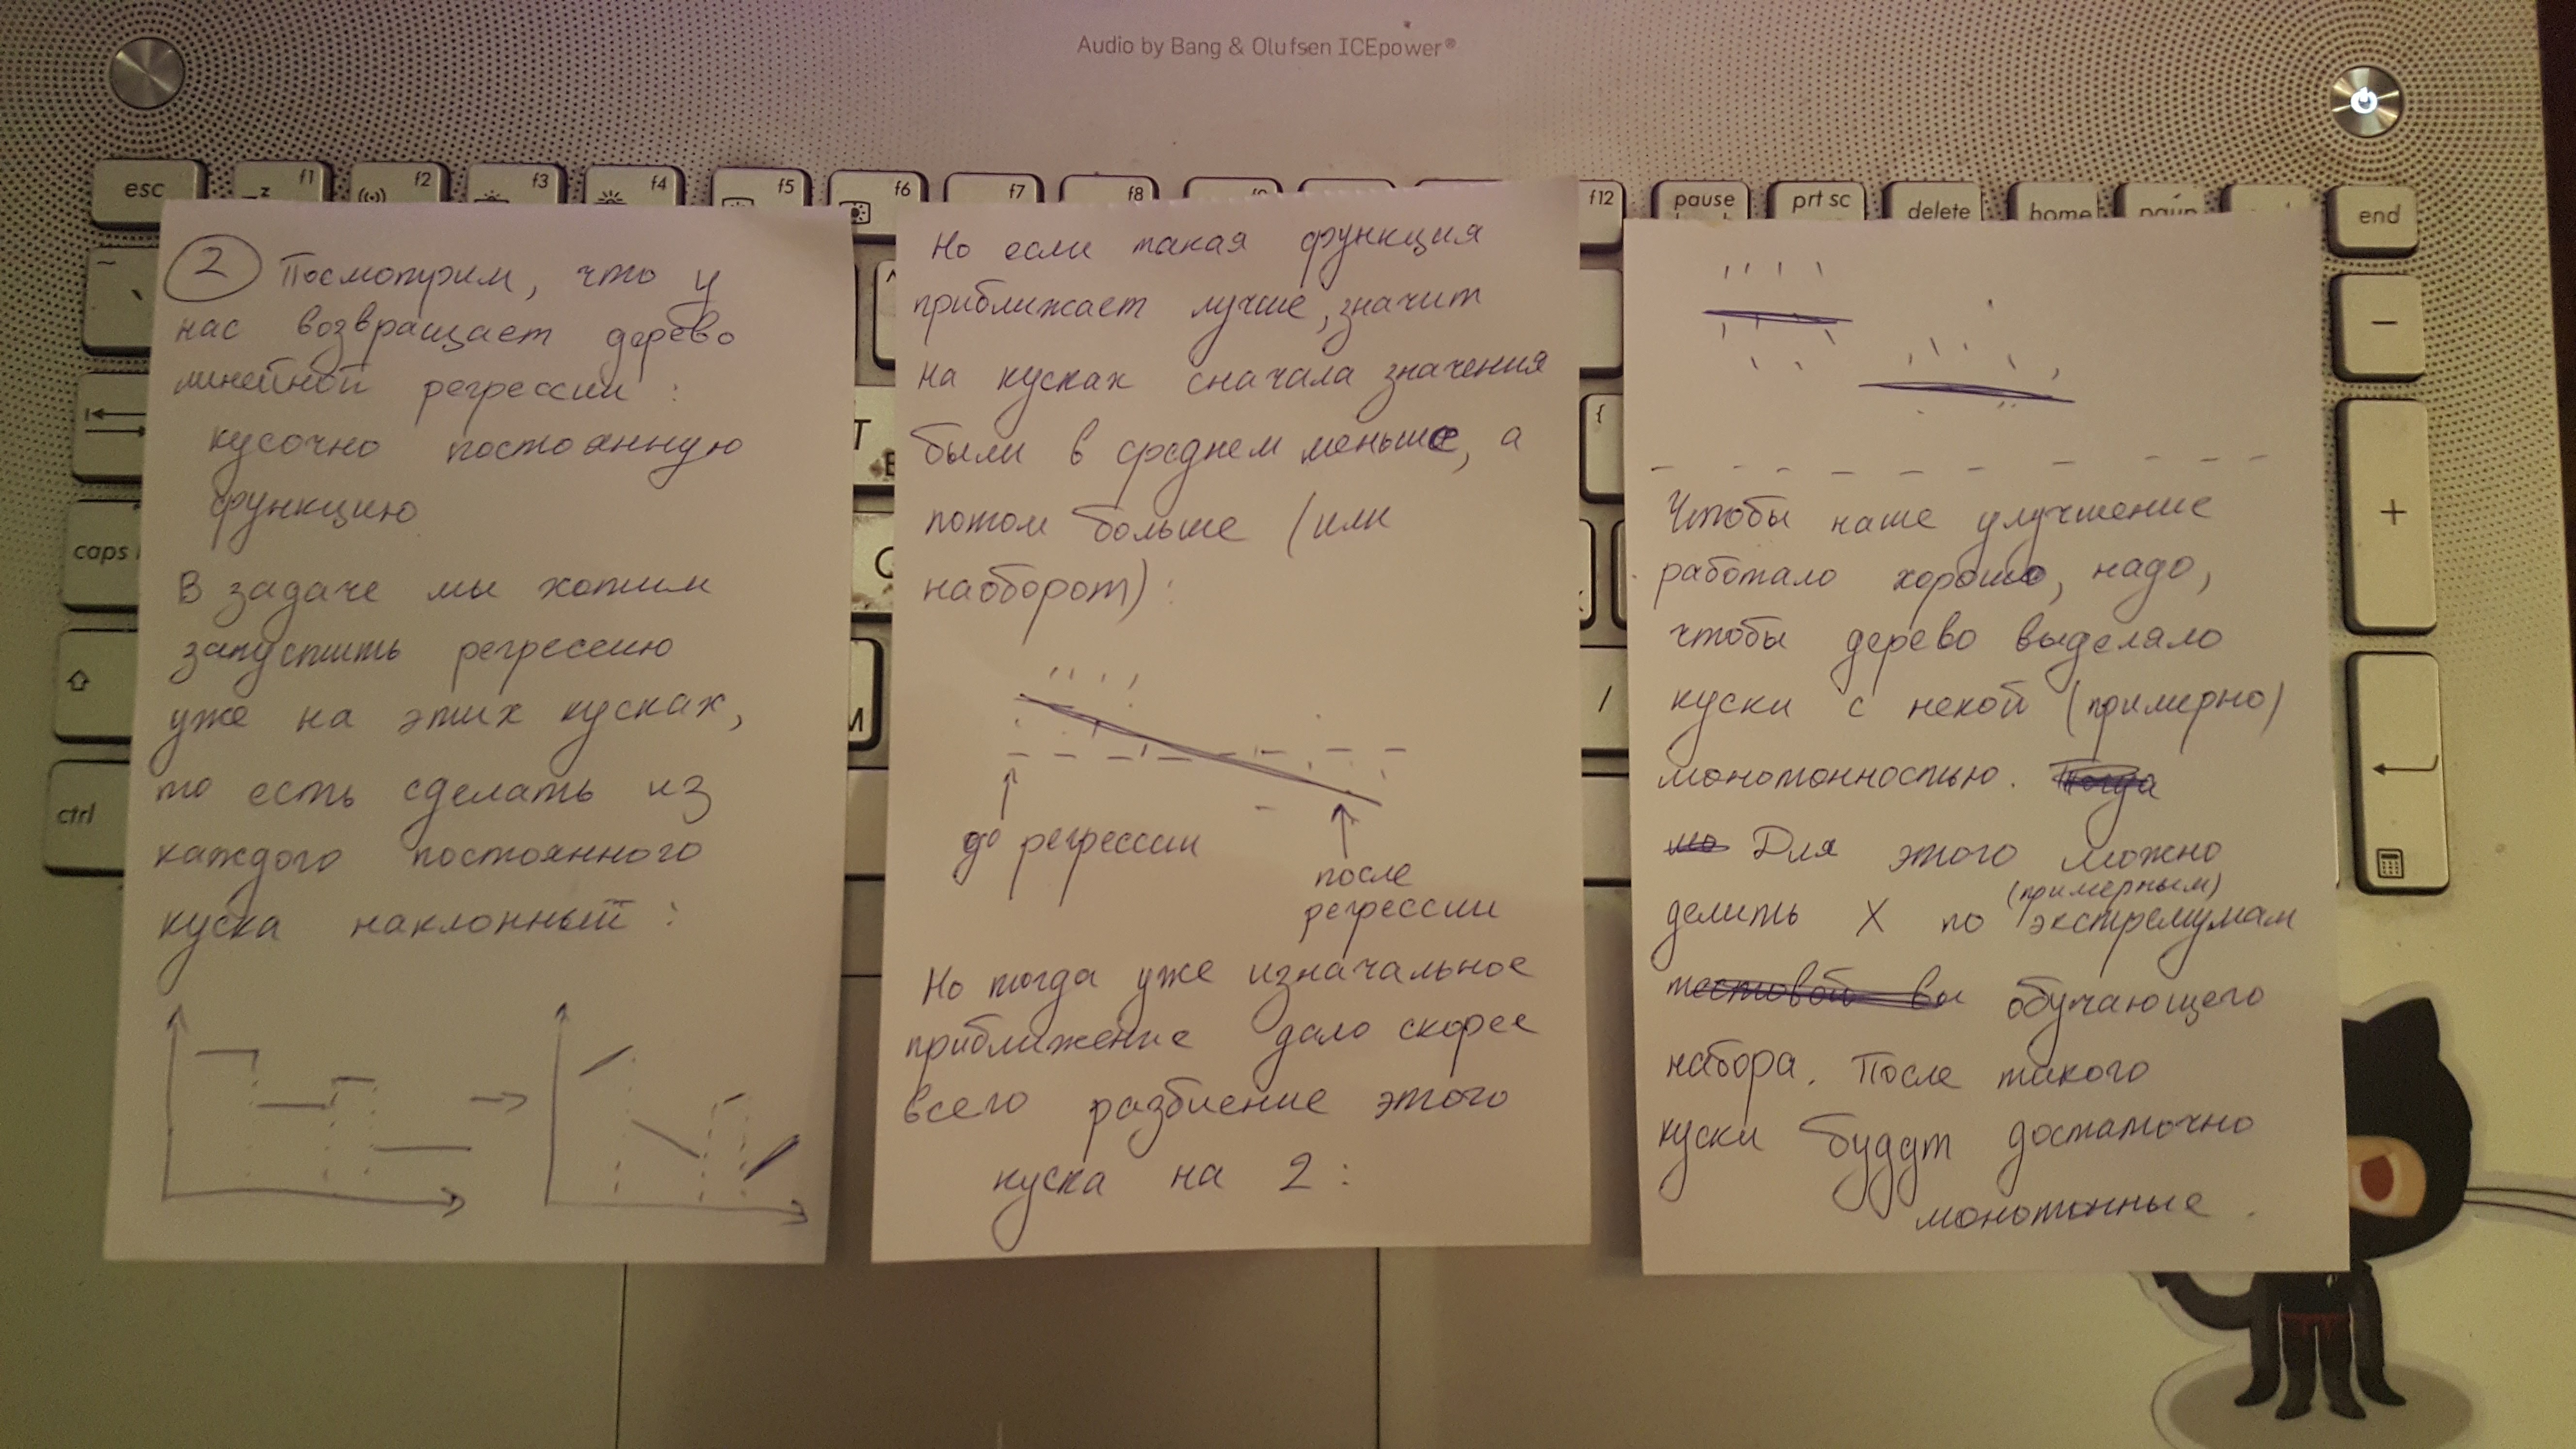 Audio by Bang & Olufsen ICEpower®
esc
f1
f2
f3
f4
f5
f6
f7
f8
f12
pause
prt sc
delete
home
end
caps
ctrl
2 Посмотрим, что у
нас возвращает дерево
линейной регрессии:
кусочно постоянную
функцию
В задаче мы хотим
запустить регрессию
уже на этих кусках,
то есть сделать из
каждого постоянного
куска наклонный:
Но если такая функция
приближает лучше, значит
на кусках сначала значения
были в среднем меньше, а
потом больше (или
наоборот):
до регрессии
после
регрессии
Но тогда уже изначальное
приближение дало скорее
всего разбиение этого
куска на 2:
Чтобы наше улучшение
работало хорошо, надо,
чтобы дерево выделяло
куски с некой (примерно)
монотонностью. Тогда
то Для этого можно
(примерным)
делить X по экстремумам
тестовой вы обучающего
набора. После такого
куски будут достаточно
монотонные.